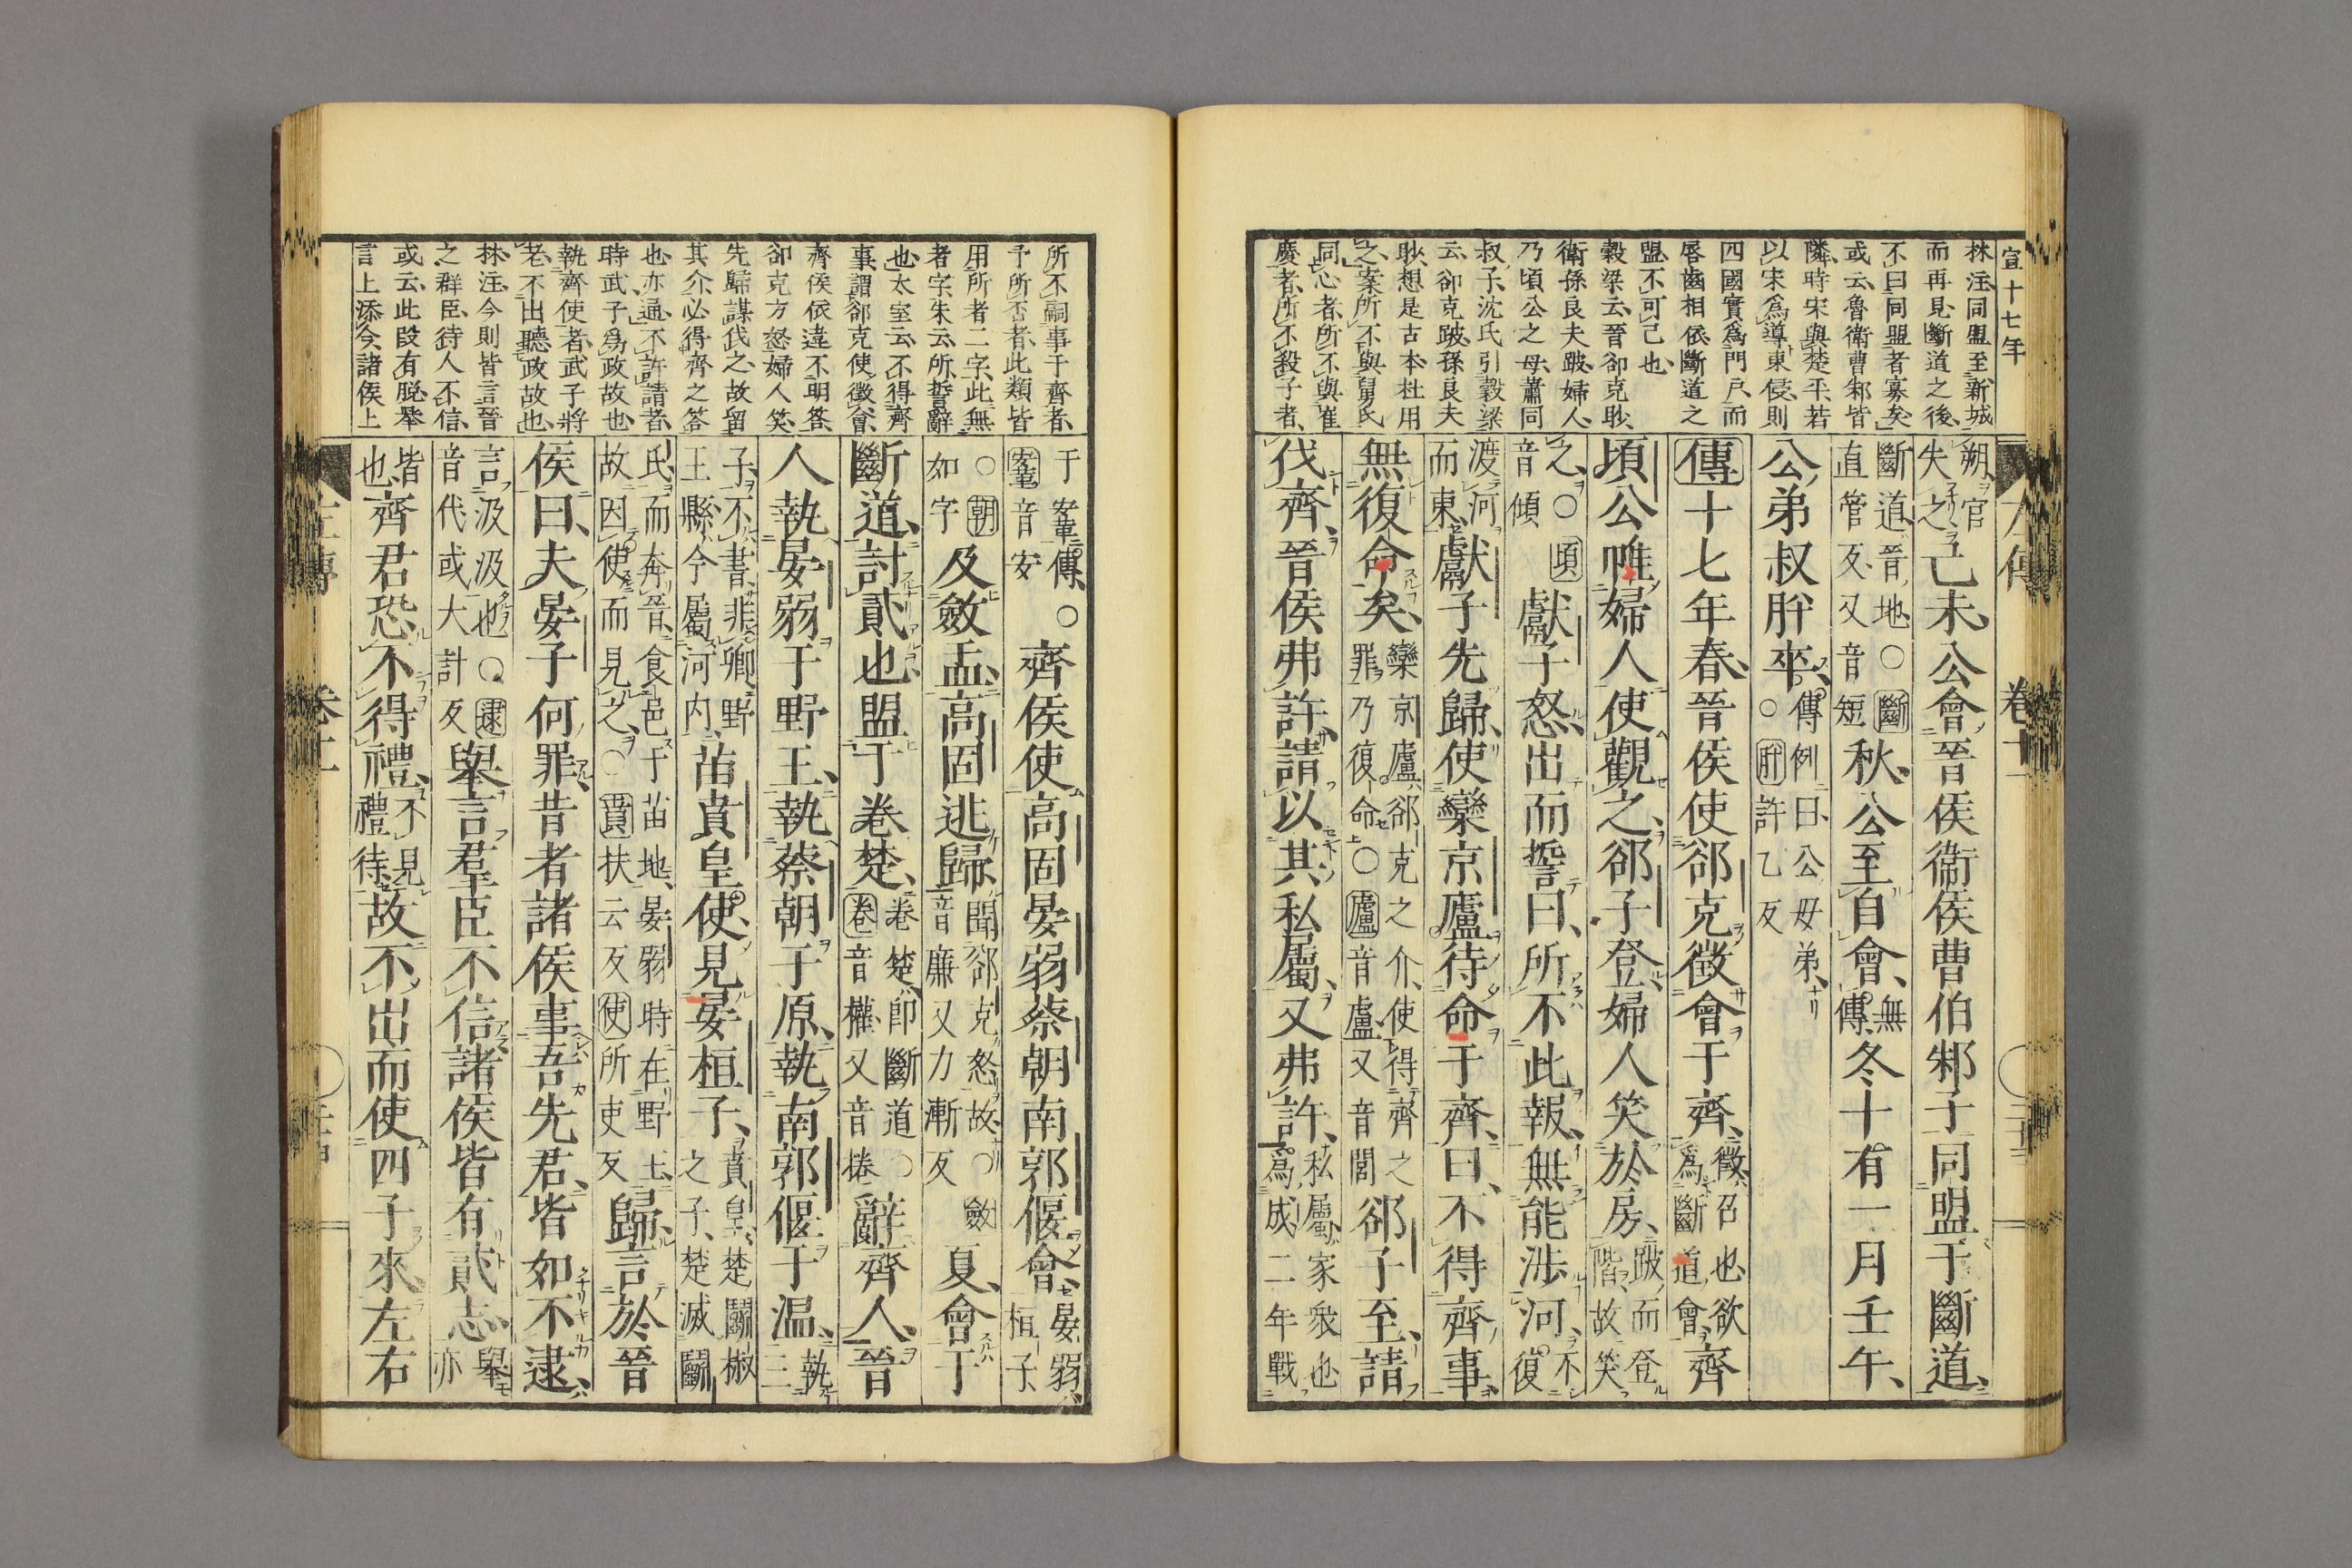 宣十七年
林注同盟至新城
而再見斷道之後
不曰同盟者寡矣
或云魯衛曹邾皆
隣時宋與楚平若
以宋爲導東侵則
四國實爲門戸而
唇齒相依斷道之
盟不可已也
穀梁云晉郤克眇
衛孫良夫跛婦人
乃頃公之母蕭同
叔子沈氏引穀梁
云郤克跛孫良夫
眇想是古本杜用
之案所不與舅氏
同心者所不與崔
慶者所不殺子者
朔官失之己未公會晉侯衞侯曹伯邾子同盟于斷道
斷道晉地○斷直管反又音短秋公至自會無傳冬十有一月壬午
公弟叔肸卒傳例曰公母弟○肸許乙反
傳十七年春晉侯使郤克徵會于齊徵召也欲爲斷道會齊
頃公帷婦人使觀之郤子登婦人笑於房跛而登階故笑
之○頃音傾獻子怒出而誓曰所不此報無能涉河不復
渡河而東獻子先歸使欒京廬待命于齊曰不得齊事
無復命矣欒京廬郤克之介使得齊之罪乃復命○廬音盧又音閭郤子至請
伐齊晉侯弗許請以其私屬又弗許私屬家衆也爲成二年戰
左傳 卷十一
所不嗣事于齊者
予所否者此類皆
用所者二字此無
者字朱云所誓辭
也太室云不得齊
事謂郤克使徵會
齊侯依違不明答
郤克方怒婦人笑
先歸謀伐之故留
其介必得齊之答
也亦通不許請者
時武子爲政故也
執齊使者武子將
老不出聽政故也
林注今則皆言晉
之群臣待人不信
或云此段有脱舉
言上添今諸侯上
于鞌傳○鞌音安齊侯使高固晏弱蔡朝南郭偃會晏弱桓子
○朝如字及斂盂高固逃歸聞郤克怒故○斂音廉又力漸反夏會于
斷道討貳也盟于卷楚卷楚即斷道○卷音權又音捲辭齊人晉
人執晏弱于野王執蔡朝于原執南郭偃于温執三
子不書非卿野王縣今屬河内苗賁皇使見晏桓子賁皇楚鬬椒之子楚滅鬬
氏而奔晉食邑于苗地晏弱時在野王故因使而見之○賁扶云反使所吏反歸言於晉
侯曰夫晏子何罪昔者諸侯事吾先君皆如不逮
言汲汲也○逮音代或大計反舉言羣臣不信諸侯皆有貳志舉亦
皆也齊君恐不得禮不見禮待故不出而使四子來左右